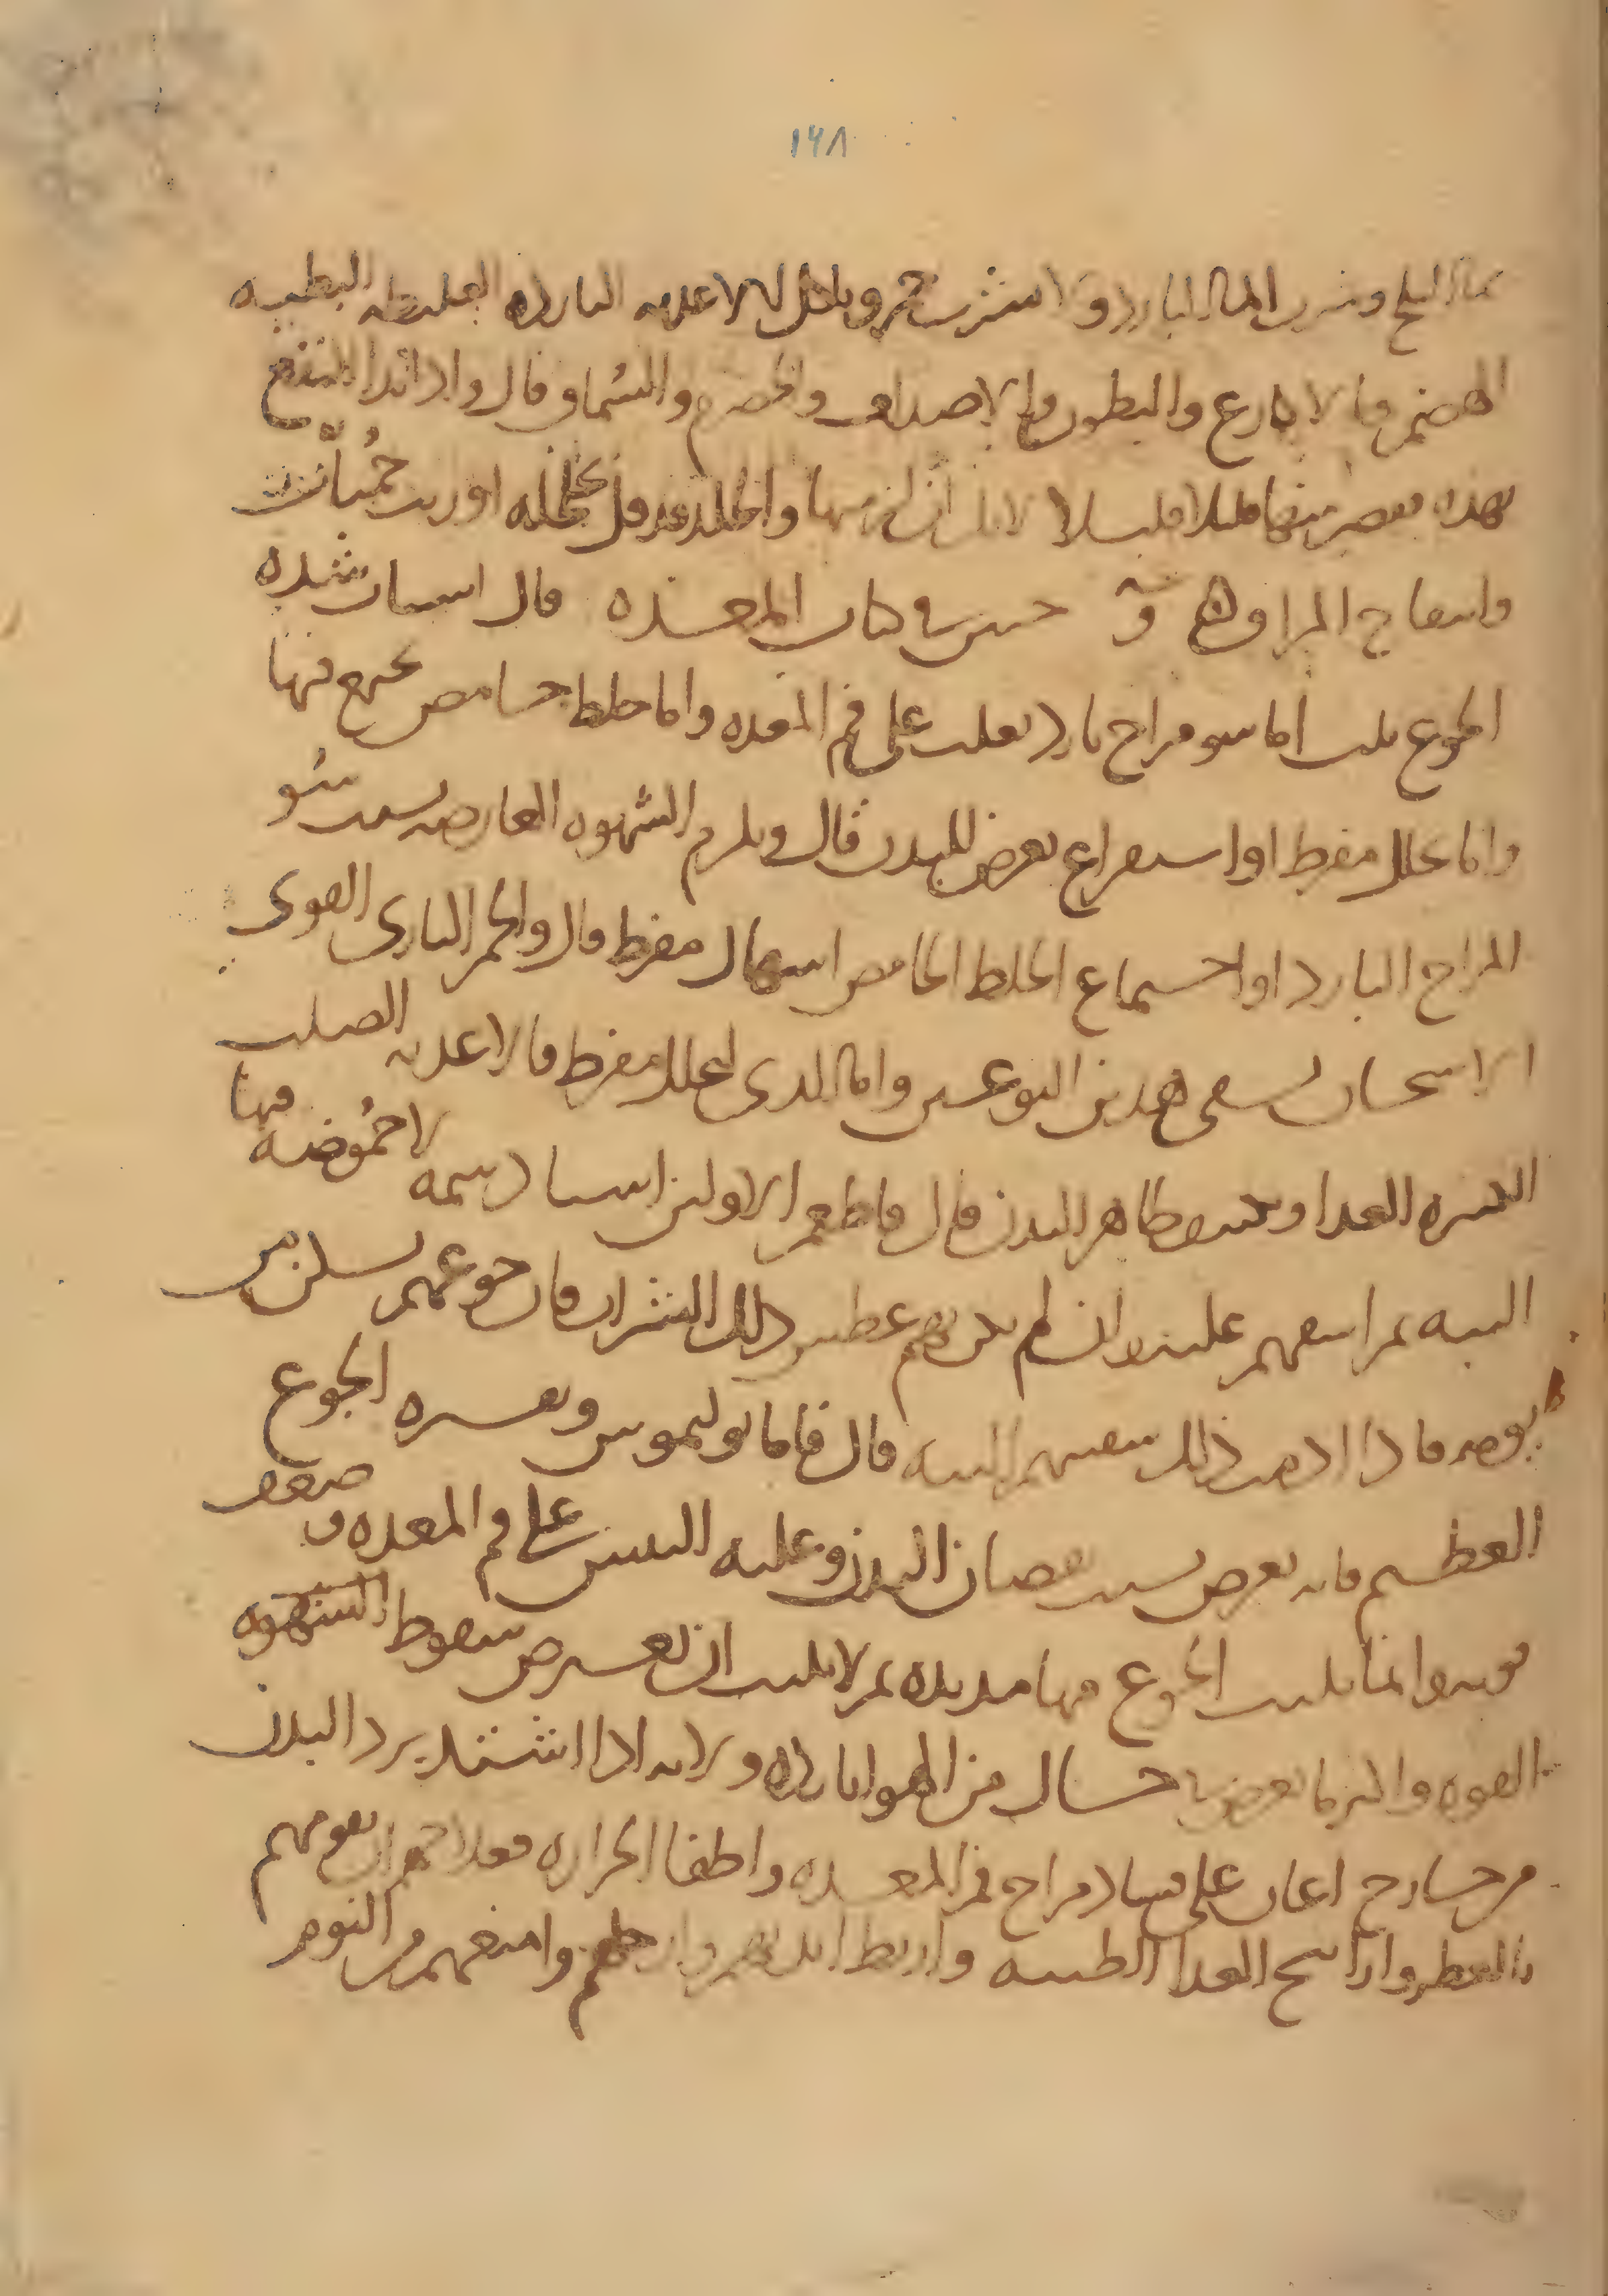 ١٦٨
بماء الثلج وشرب الماء البارد ولا يشرب خمر وياكل الاغذيه البارده الغليظه البطيه
الهضم والاكارع والبطون والاصداف والحصرم والسماق قال واذا ابتدا الانتفاخ
بهذه فقصر منها قليلا قليلا لان لزومها والجلد قد قل تحلله اورث حميات
وانتفاخ المراق حنين في كتاب المعده قال اسباب شده
الجوع ثلث اما سو مزاج بارد يغلب على فم المعده واما خلط حامض يجتمع فيها
واما تحلل مفرط او استفراغ يعرض للبدن قال ويلزم الشهوه العارضه بسبب سو
المزاج البارد او اجتماع الخلط الحامض اسهال مفرط قال والخمر الناري القوي
الاسخان يشفى هذين النوعين واما الذي لتحلل مفرط فالاغذيه الصلب
العسره الغذا وتكثيف ظاهر البدن قال فاطعم الاولين اشيا دسمه لا حموضه فيها
البته ثم اسقهم عليه وان لم يكن بهم عطش ذلك الشراب فان جوعهم يسكن من
يومهم فاذا ادمنت ذلك شفيتهم البته قال فاما بوليموس وتفسيره الجوع
العظيم فانه يعرض بسبب نقصان البدن وغلبه اليبس على فم المعده وضعف
قوته وانما يلبث الجوع فيها مديده ثم لا يلبث ان تعرض سقوط الشهوه
القوه واكثر ما يعرض حال من الهوا بارده ولانه اذا اشتد برد البدن
من خارج اعان على فساد مزاج فم المعده واطفا الحراره فعلاجهم ان تقويهم
بالعطر واراييح الغذا الطيبه واربط ايديهم وارجلهم وامنعهم من النوم